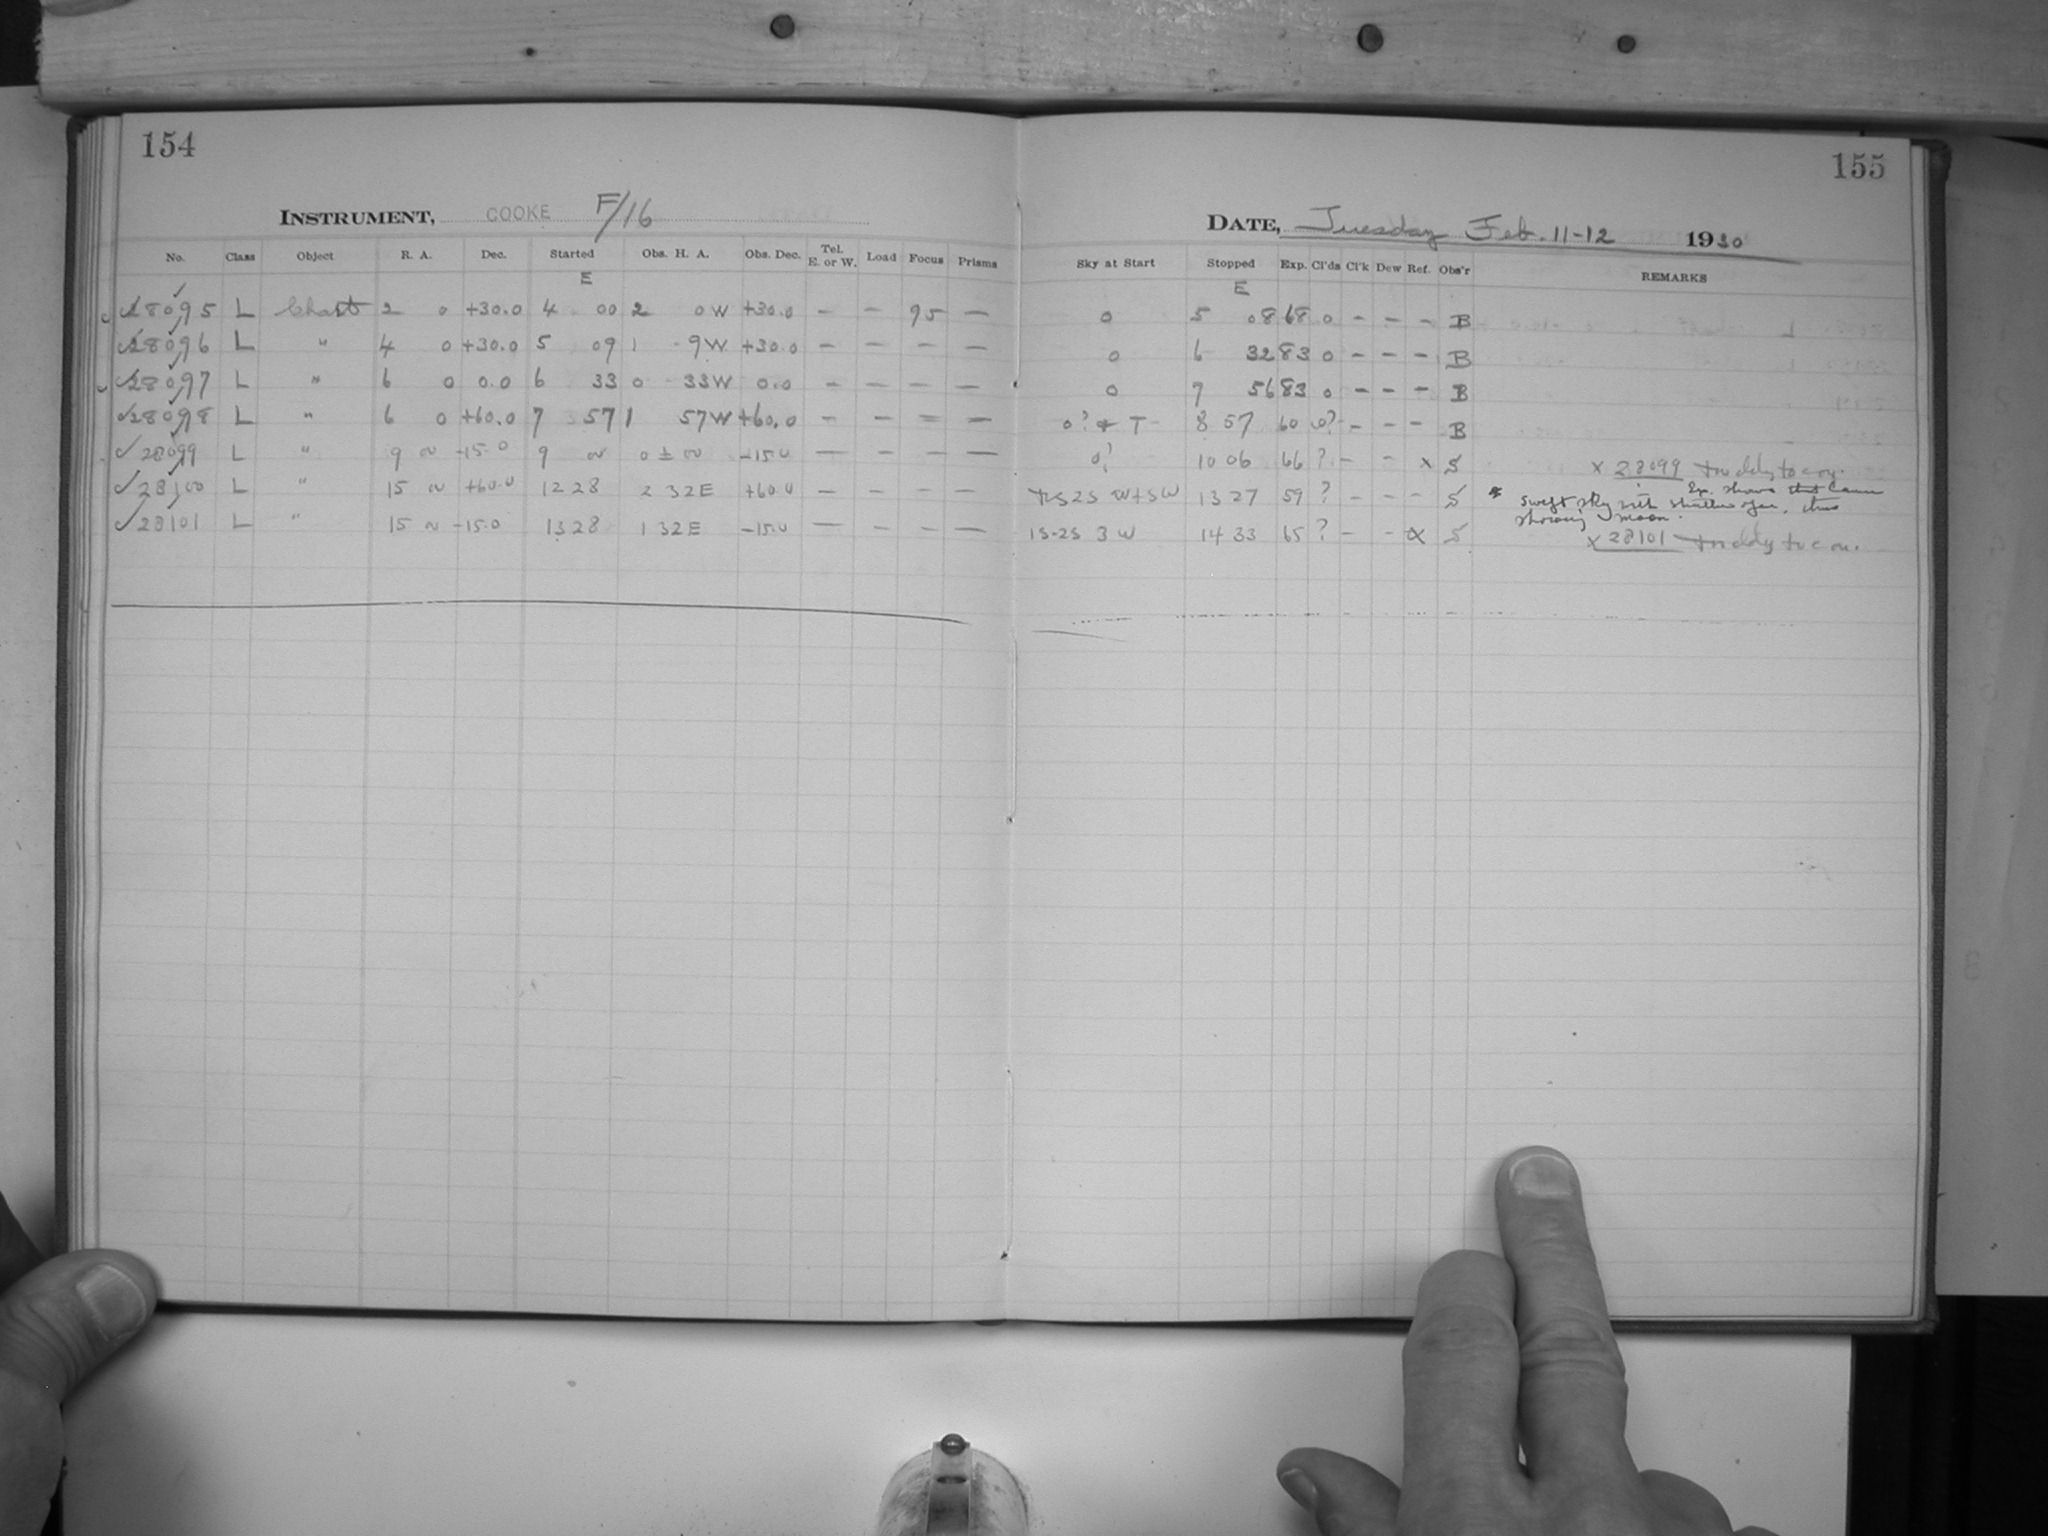 154
INSTRUMENT, COOKE F/16
No. Class Object R. A. Dec. Started Obs. H. A. Obs. Dec. Tel. E. or W. Load Focus Prisms
E
28095 L Chart 2 0 +30.0 4 00 2 0W +30.0 — — 95 —
28096 L " 4 0 +30.0 5 09 1 9W +30.0 — — — —
28097 L " 6 0 0.0 6 33 0 33W 0.0 — — — —
28098 L " 6 0 +60.0 7 57 1 57W +60.0 — — — —
28099 L " 9 ~ -15.0 9 ~ 0 ± ~ -15.0 — — — —
28100 L " 15 ~ +60.0 12 28 2 32E +60.0 — — — —
28101 L " 15 ~ -15.0 13 28 1 32E -15.0 — — — —
155
DATE, Tuesday Feb. 11-12 1930
Sky at Start Stopped Exp. Cl'ds Cl'k Dew Ref. Obs'r REMARKS
E
0 5 08 68 0 - - - B
0 6 32 83 0 - - - B
0 7 56 83 0 - - - B
0? T 8 57 60 0? - - - B
0? 10 06 66 ? - - x S x 28099
13 27 59 ? - - - S shows that
swept sky with
showing moon.
1S-2S 3 W 14 33 65 ? - - x S x 28101